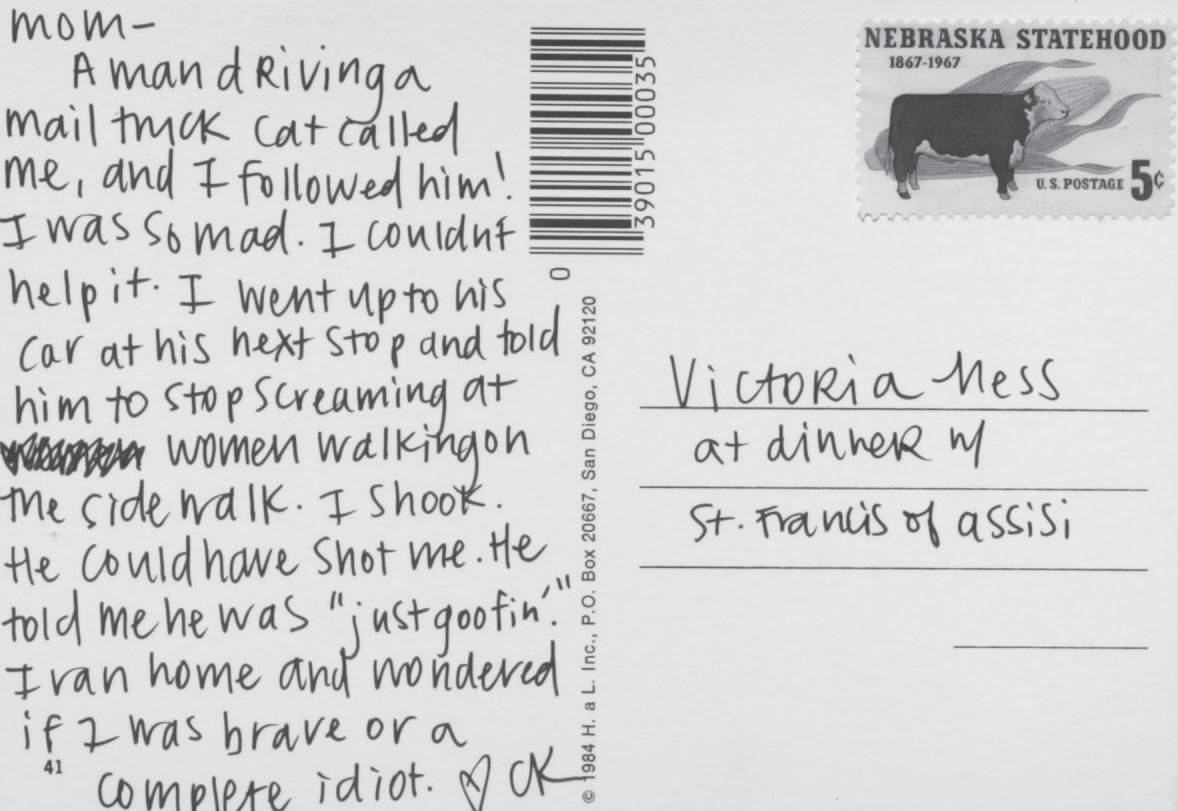 mom-
A man dRiving a
mail truck cat called
me, and I followed him!
I was so mad. I couldnt
help it. I went up to his
car at his next stop and told
him to stop screaming at
women walking on
the sidewalk. I shook.
He could have shot me. He
told me he was "just goofin'."
I ran home and wondered
if I was brave or a
complete idiot. ♡ CK
41
39015 00035
0
© 1984 H. a L. Inc., P.O. Box 20667, San Diego, CA 92120
NEBRASKA STATEHOOD
1867-1967
U.S. POSTAGE 5¢
VictoRia Hess
at dinneR w/
St. Francis of assisi